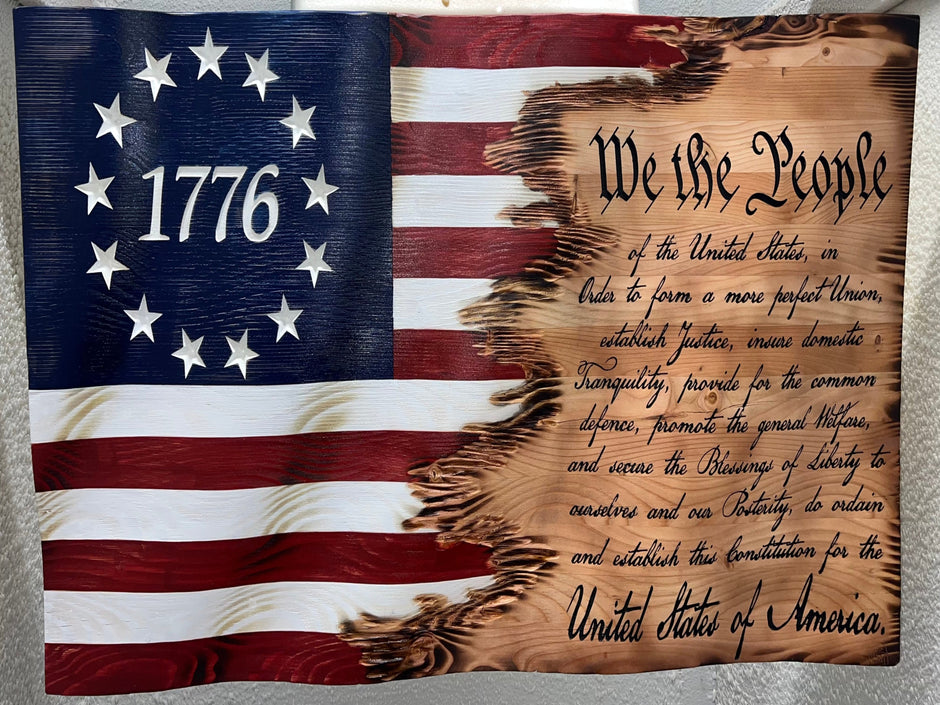 1776
We the People
of the United States, in
Order to form a more perfect Union,
establish Justice, insure domestic
Tranquility, provide for the common
defence, promote the general Welfare,
and secure the Blessings of Liberty to
ourselves and our Posterity, do ordain
and establish this Constitution for the
United States of America.